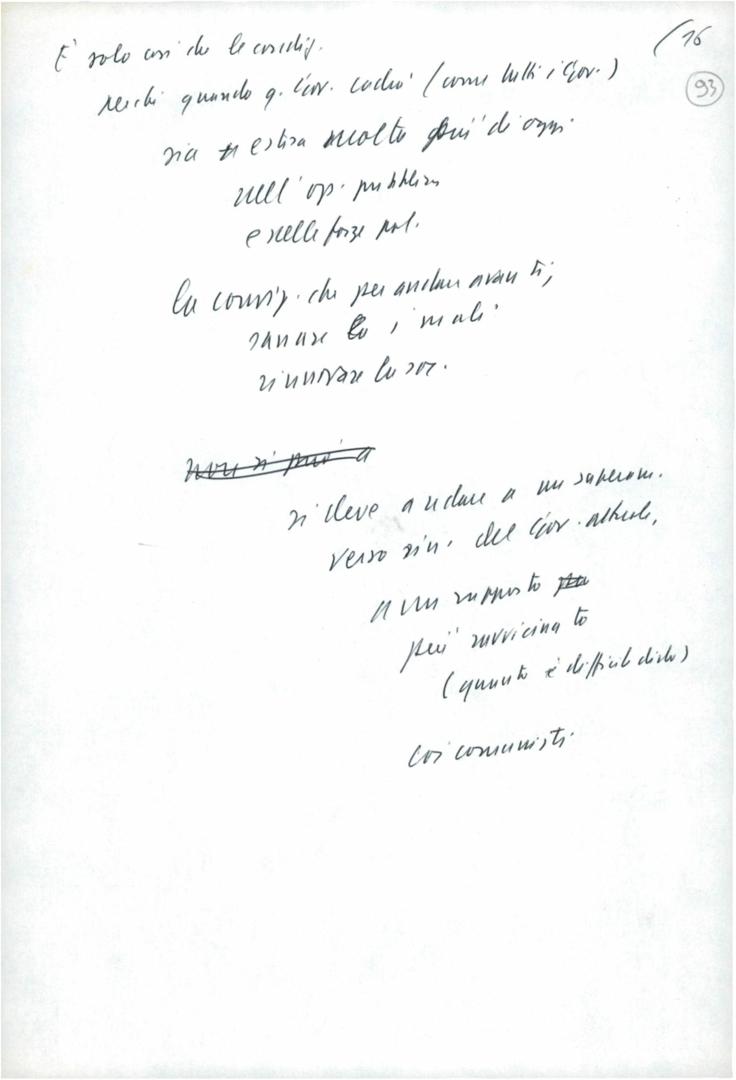 (16
93
È solo così che le condiz.
perché quando q. Gov. cadrà (come tutti i Gov.)
sia estesa molto più di oggi
nell'op. pubblica
e nelle forze pol.
la convinz. che per andare avanti,
sanare i mali
rinnovare la soc.
non si può a
si deve andare a un superam.
verso sin. del Gov. attuale,
a un rapporto
più ravvicinato
(quanto è difficile dirlo)
coi comunisti.